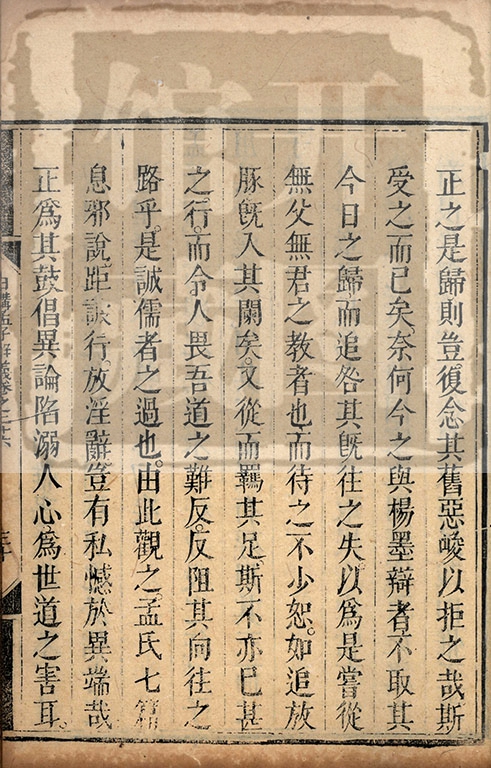 正之是歸則豈復念其舊惡峻以拒之哉斯
受之而已矣奈何今之與楊墨辯者不取其
今日之歸而追咎其旣往之失以爲是嘗從
無父無君之教者也而待之不少恕如追放
豚旣入其闌矣又從而羈其足斯不亦已甚
之行而令人畏吾道之難反反阻其向往之
路乎是誠儒者之過也由此觀之孟氏七篇
息邪說距詖行放淫辭豈有私憾於異端哉
正爲其鼓倡異論陷溺人心爲世道之害耳
日講孟子解義卷之二十六